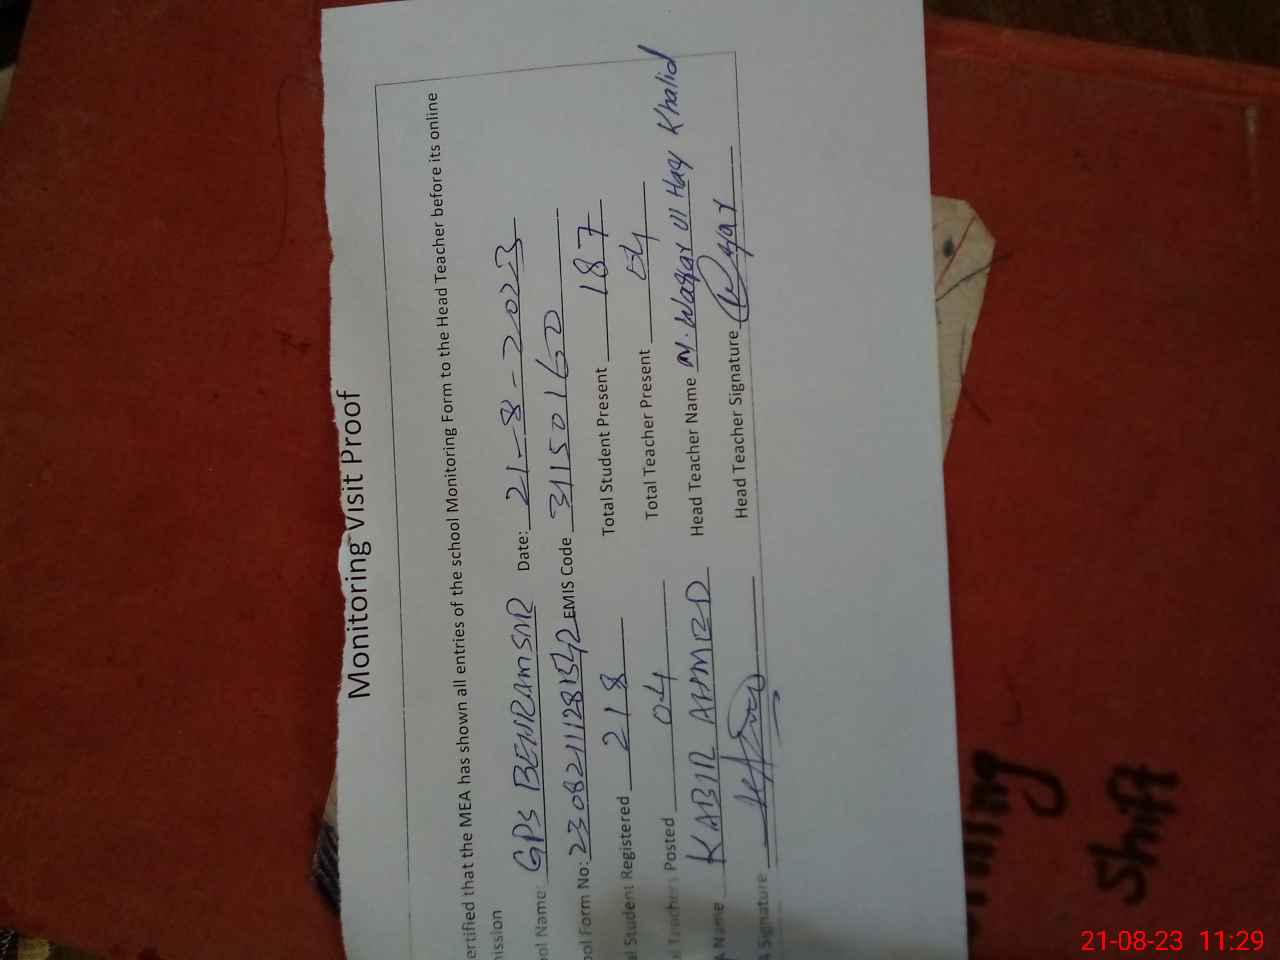 Monitoring Visit Proof
ertified that the MEA has shown all entries of the school Monitoring Form to the Head Teacher before its online
ission
ol Name: GPS BEHRAMSAR Date: 21-8-2023
ool Form No: 2308211281542 EMIS Code 31150160
al Student Registered 218 Total Student Present 187
al Teachers Posted 04 Total Teacher Present 04
A Name KABIR AHMED Head Teacher Name M. Waqar Ul Haq Khalid
A Signature Head Teacher Signature Waqar
Shift
21-08-23 11:29